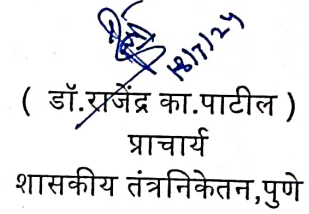 18/7/24
( डॉ.राजेंद्र का.पाटील )
प्राचार्य
शासकीय तंत्रनिकेतन,पुणे